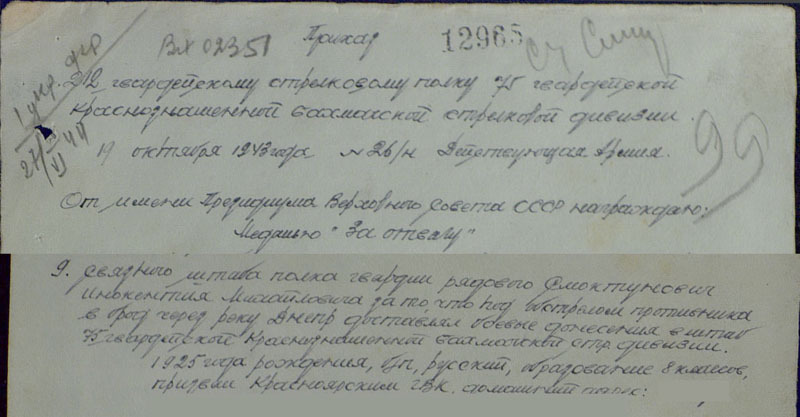 Вх 02351
Приказ
12965
212 гвардейскому стрелковому полку 75 гвардейской
Краснознаменной Бахмачской стрелковой дивизии.
19 октября 1943 года № 26/н Действующая Армия.
99
От имени Президиума Верховного Совета СССР награждаю:
Медалью "За отвагу"
9. связного штаба полка гвардии рядового Смоктунович
Инокентия Михайловича за то, что под обстрелом противника
в брод через реку Днепр доставлял боевые донесения в штаб
75 гвардейской Краснознаменной Бахмачской стр. дивизии.
1925 года рождения, б/п, русский, образование 8 классов,
призван Красноярским ГВК. домашний адрес: